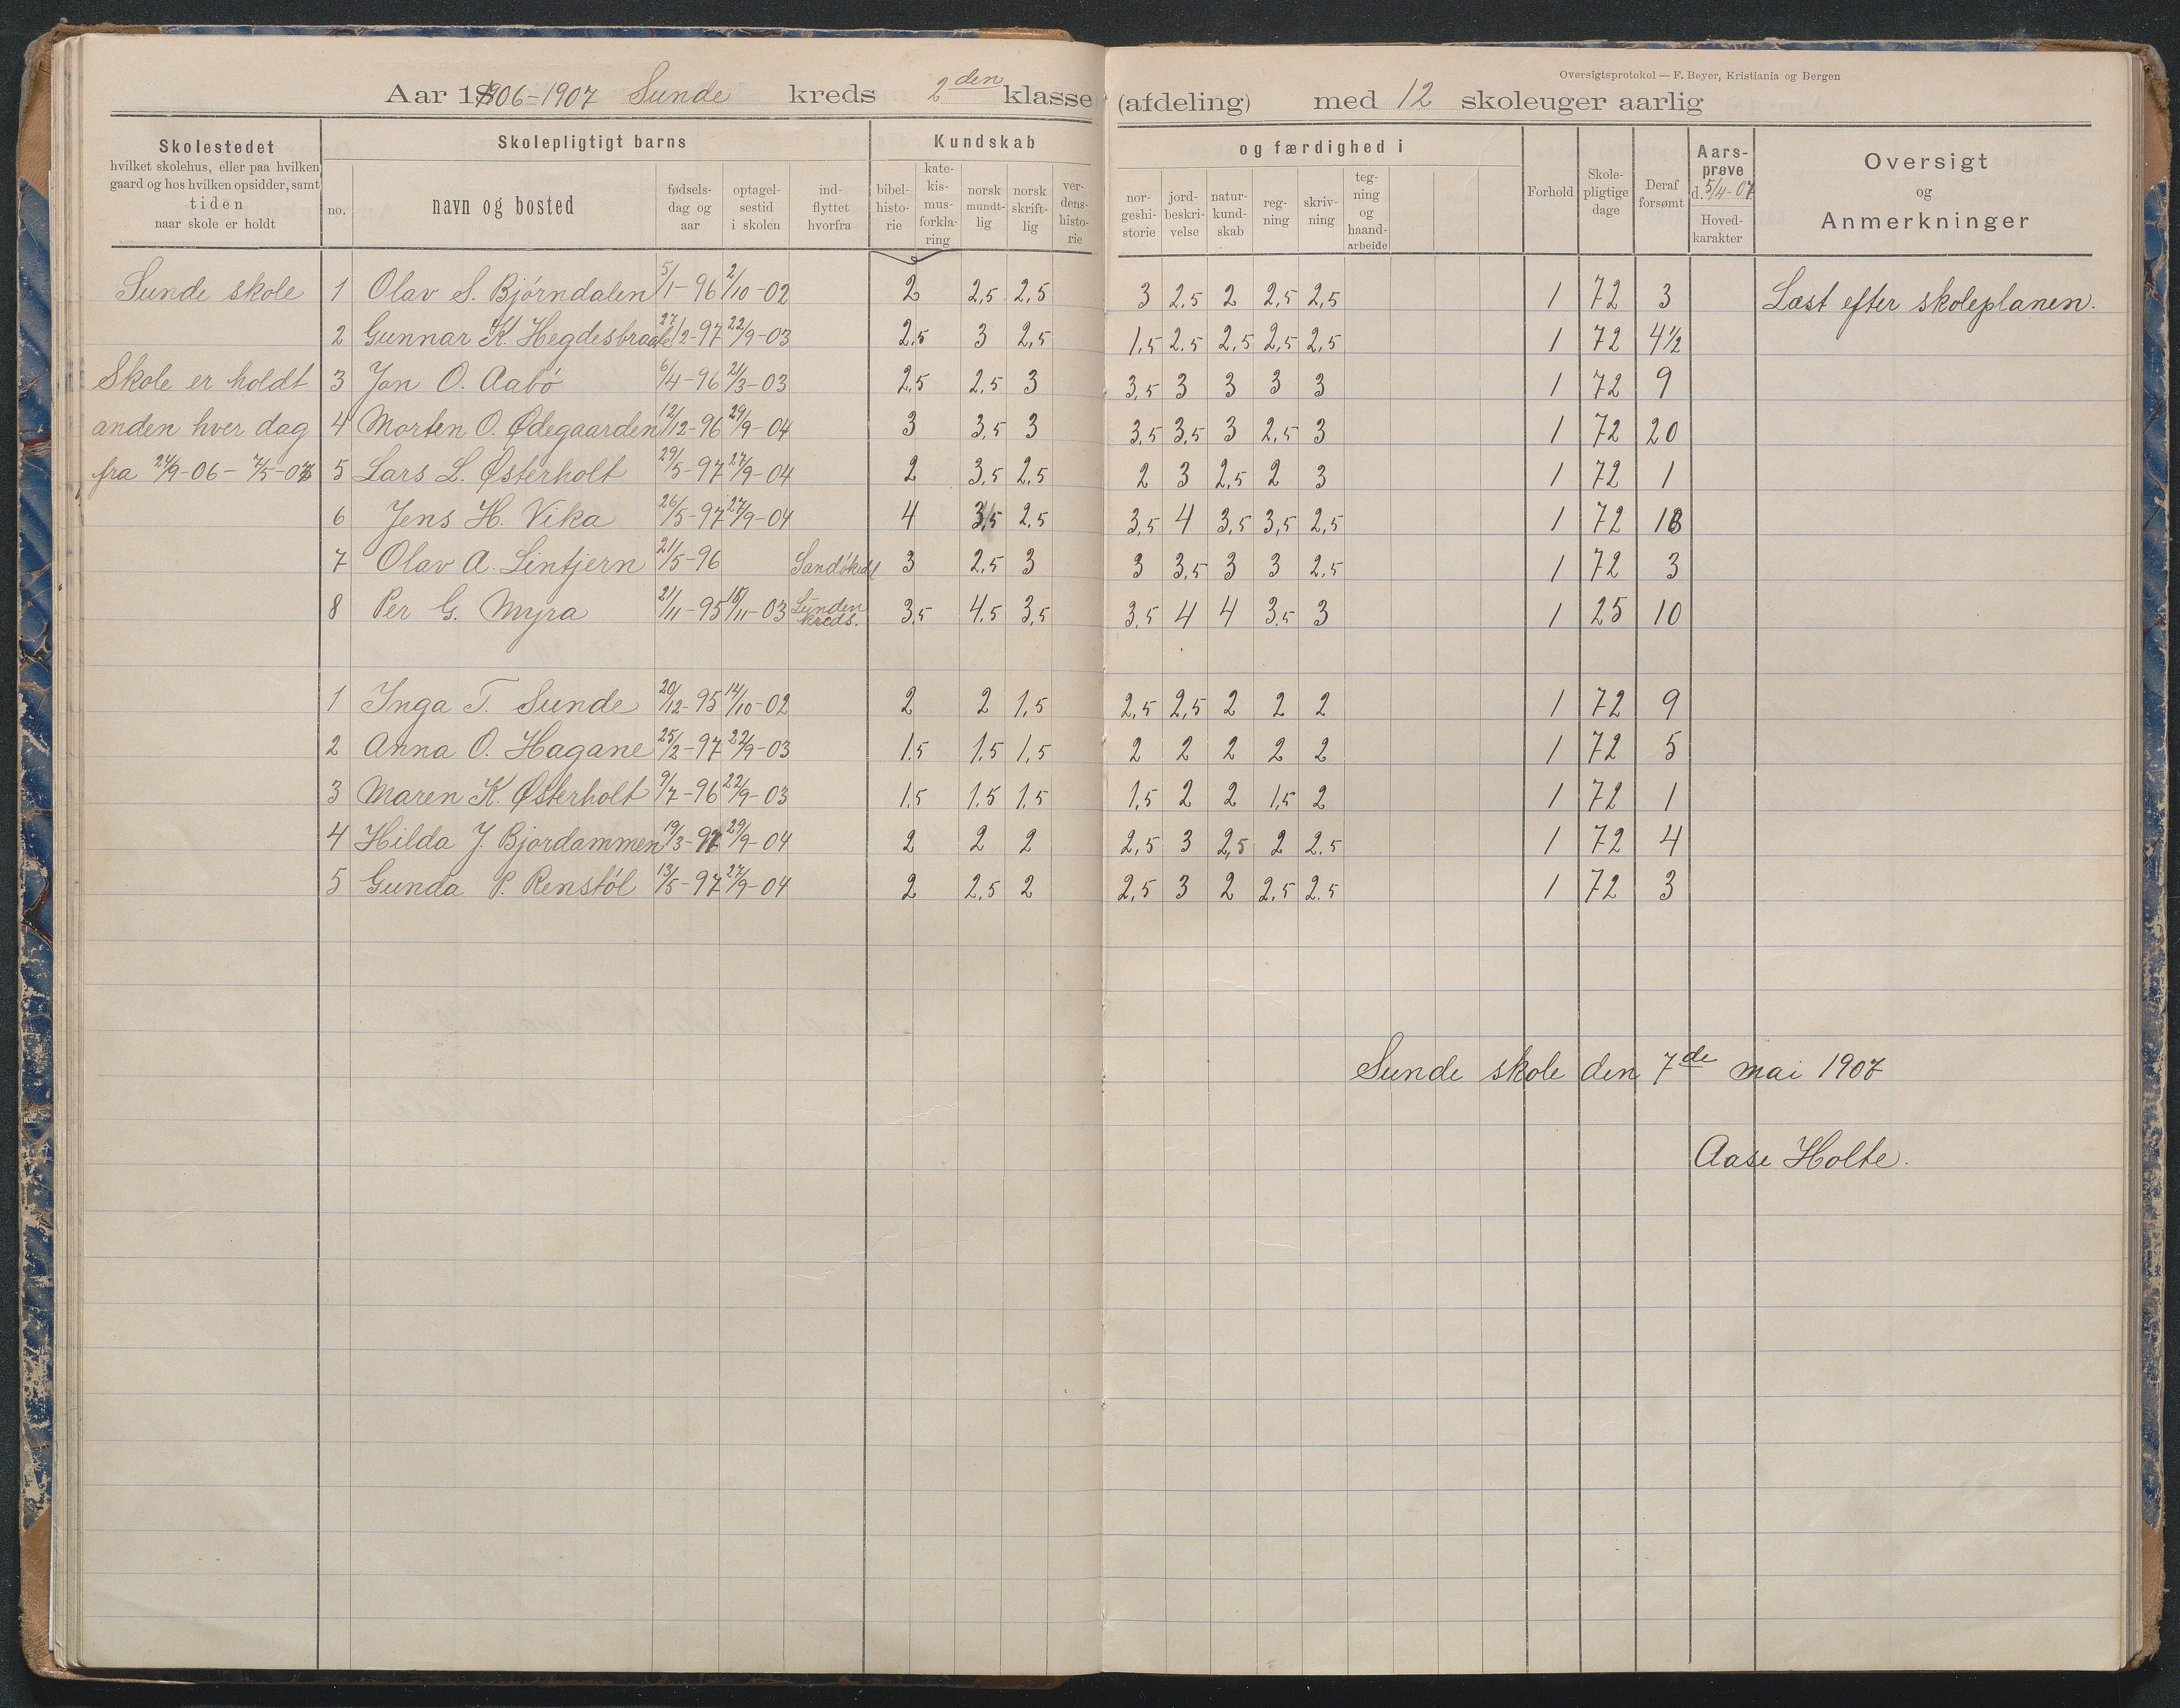 Oversigtsprotokol — F. Beyer, Kristiania og Bergen
Aar 1906-1907 Sunde kreds 2den klasse (afdeling) med 12 skoleuger aarlig
Skolestedet
hvilket skolehus, eller paa hvilken
gaard og hos hvilken opsidder, samt
tiden
naar skole er holdt
Skolepligtigt barns
no.
navn og bosted
fødsels-
dag og
aar
optagel-
sestid
i skolen
ind-
flyttet
hvorfra
Kundskab
bibel-
histo-
rie
kate-
kis-
mus-
forkla-
ring
norsk
mundt-
lig
norsk
skrift-
lig
ver-
dens-
histo-
rie
og færdighed i
nor-
geshi-
storie
jord-
beskri-
velse
natur-
kund-
skab
reg-
ning
skriv-
ning
teg-
ning
og
haand-
arbeide
Forhold
Skole-
pligtige
dage
Deraf
forsømt
Aars-
prøve
d. 5/4-07.
Hoved-
karakter
Oversigt
og
Anmerkninger
Sunde skole 1 Olav S. Bjørndalen 5/1-96 2/10-02 2 2,5 2,5 3 2,5 2 2,5 2,5 1 72 3 Læst efter skoleplanen.
2 Gunnar K. Hegdesbraate 27/2-97 22/9-03 2,5 3 2,5 1,5 2,5 2,5 2,5 2,5 1 72 4 1/2
Skole er holdt 3 Jon O. Aabø 6/4-96 21/3-03 2,5 2,5 3 3,5 3 3 3 3 1 72 9
anden hver dag 4 Morten O. Ødegaarden 12/12-96 29/9-04 3 3,5 3 3,5 3,5 3 2,5 3 1 72 20
fra 24/9-06 - 7/5-07 5 Lars L. Østerholt 29/5-97 27/9-04 2 3,5 2,5 2 3 2,5 2 3 1 72 1
6 Jens H. Vika 26/5-97 27/9-04 4 3,5 2,5 3,5 4 3,5 3,5 2,5 1 72 18
7 Olav A. Lintjern 21/5-96 3 2,5 3 3 3,5 3 3 2,5 1 72 3
8 Per G. Myra 21/11-95 18/11-03 Lunden kreds. 3,5 4,5 3,5 3,5 4 4 3,5 3 1 25 10
1 Inga T. Sunde 20/12-95 14/10-02 2 2 1,5 2,5 2,5 2 2 2 1 72 9
2 Anna O. Hagane 25/2-97 22/9-03 1,5 1,5 1,5 2 2 2 2 2 1 72 5
3 Maren K. Østerholt 9/7-96 22/9-03 1,5 1,5 1,5 1,5 2 2 1,5 2 1 72 1
4 Hilda J. Bjordammen 19/3-97 29/9-04 2 2 2 2,5 3 2,5 2 2,5 1 72 4
5 Gunda P. Renstøl 13/5-97 27/9-04 2 2,5 2 2,5 3 2 2,5 2,5 1 72 3
Sunde skole den 7de mai 1907
Aase Holte.